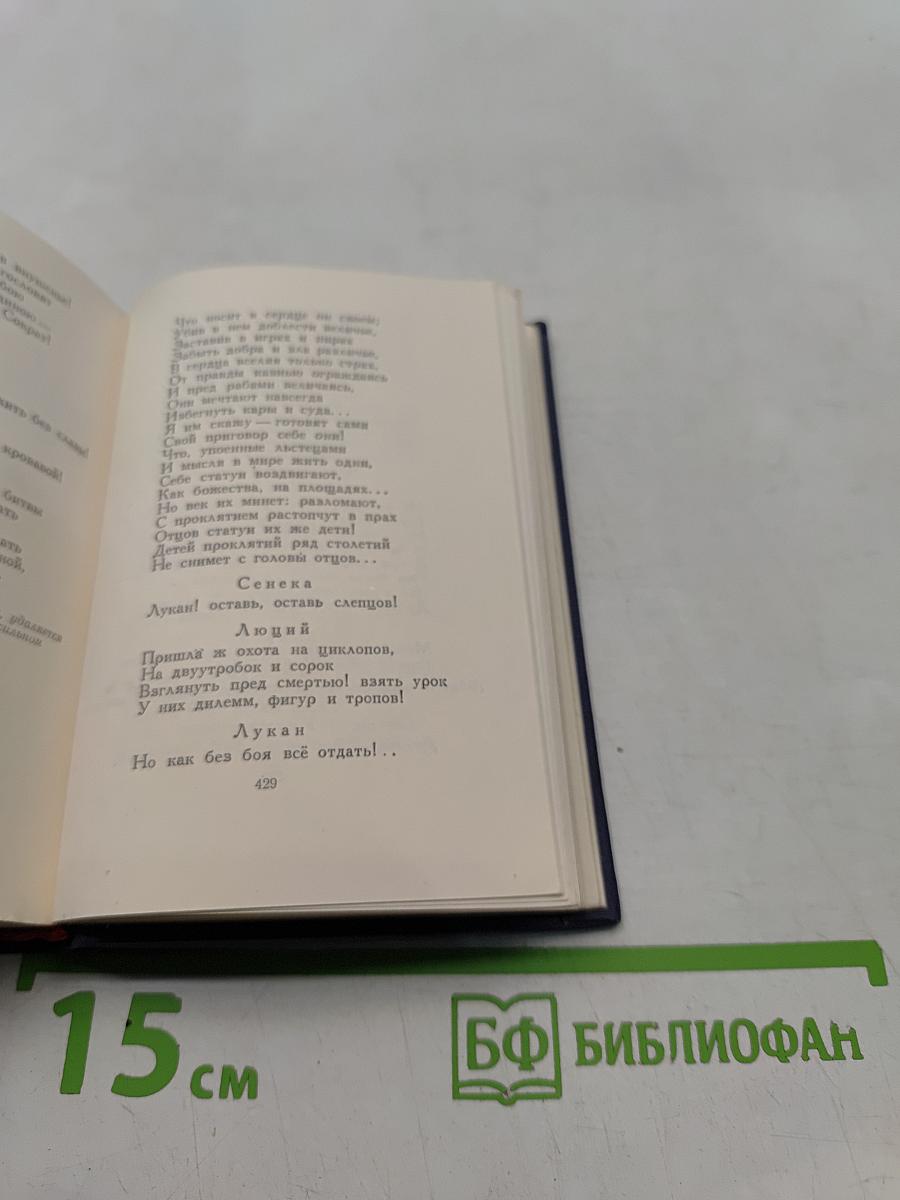 в внушенье!
бою
Сократ!
жить без славы!
кровавой!
битвы
удаляется
сильной
Что носит в сердце он своем;
Убив в нем доблести величье,
Заставив в играх и пирах
Забыть добра и зла различье,
В сердца вселив только страх,
От правды казнью ограждаясь
И пред рабами величаясь,
Они мечтают навсегда
Избегнуть кары и суда...
Я им скажу — готовят сами
Свой приговор себе они!
Что, упоенные льстецами
И мысля в мире жить одни,
Себе статуи воздвигают,
Как божества, на площадях...
Но век их минет: разломают,
С проклятием растопчут в прах
Отцов статуи их же дети!
Детей проклятий ряд столетий
Не снимет с головы отцов...
Сенека
Лукан! оставь, оставь слепцов!
Люций
Пришла ж охота на циклопов,
На двуутробок и сорок
Взглянуть пред смертью! взять урок
У них дилемм, фигур и тропов!
Лукан
Но как без боя всё отдать!..
429
15 см
БФ БИБЛИОФАН